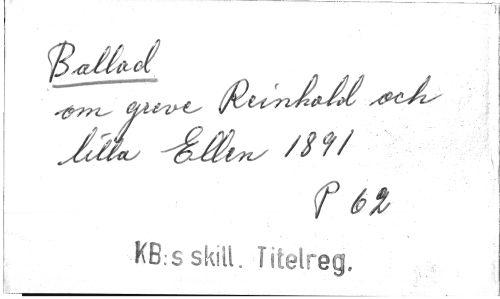 Ballad
om greve Reinhold och
lilla Ellen 1891
P 62
KB:s skill. Titelreg.